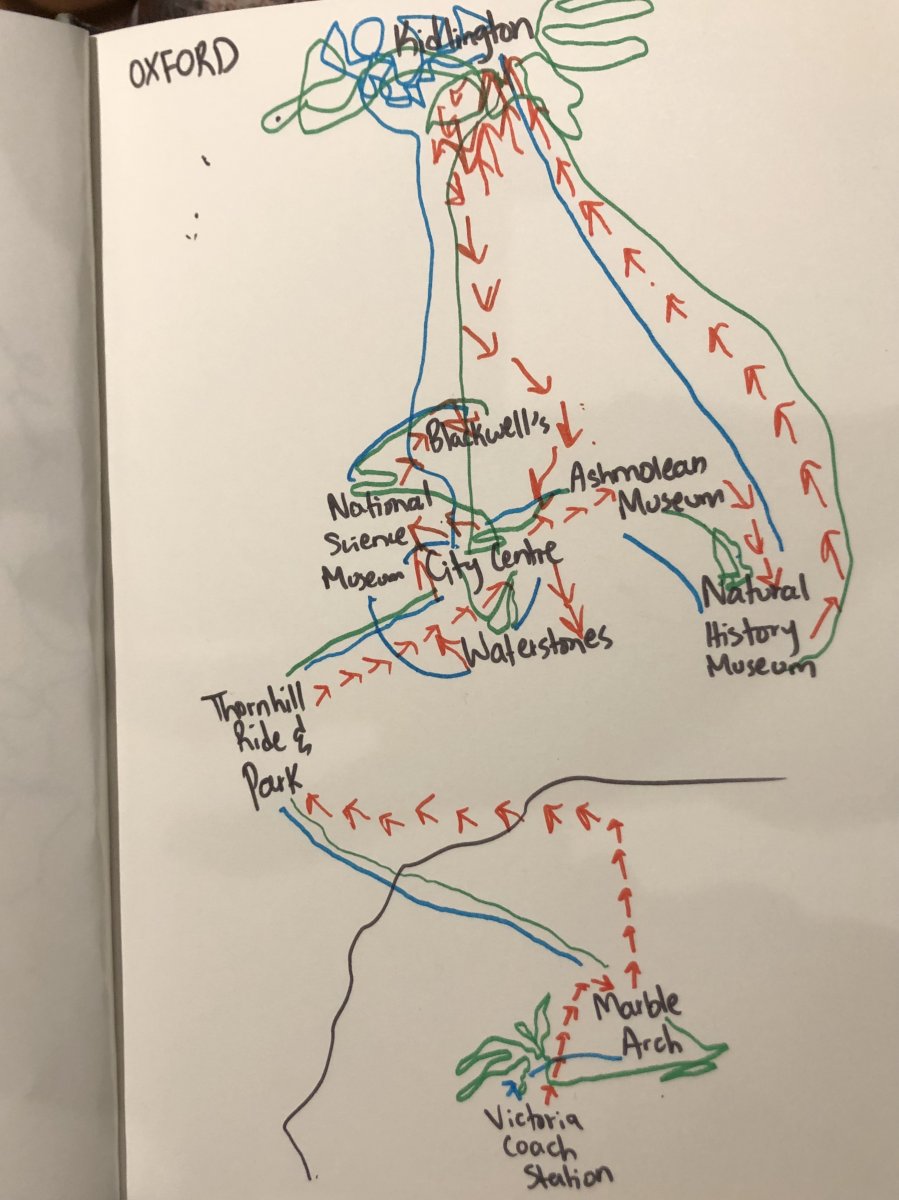 OXFORD
Kidlington
Blackwell's
Ashmolean
Museum
National
Science
Museum
City Centre
Natural
History
Museum
Waterstones
Thornhill
Ride &
Park
Marble
Arch
Victoria
Coach
Station